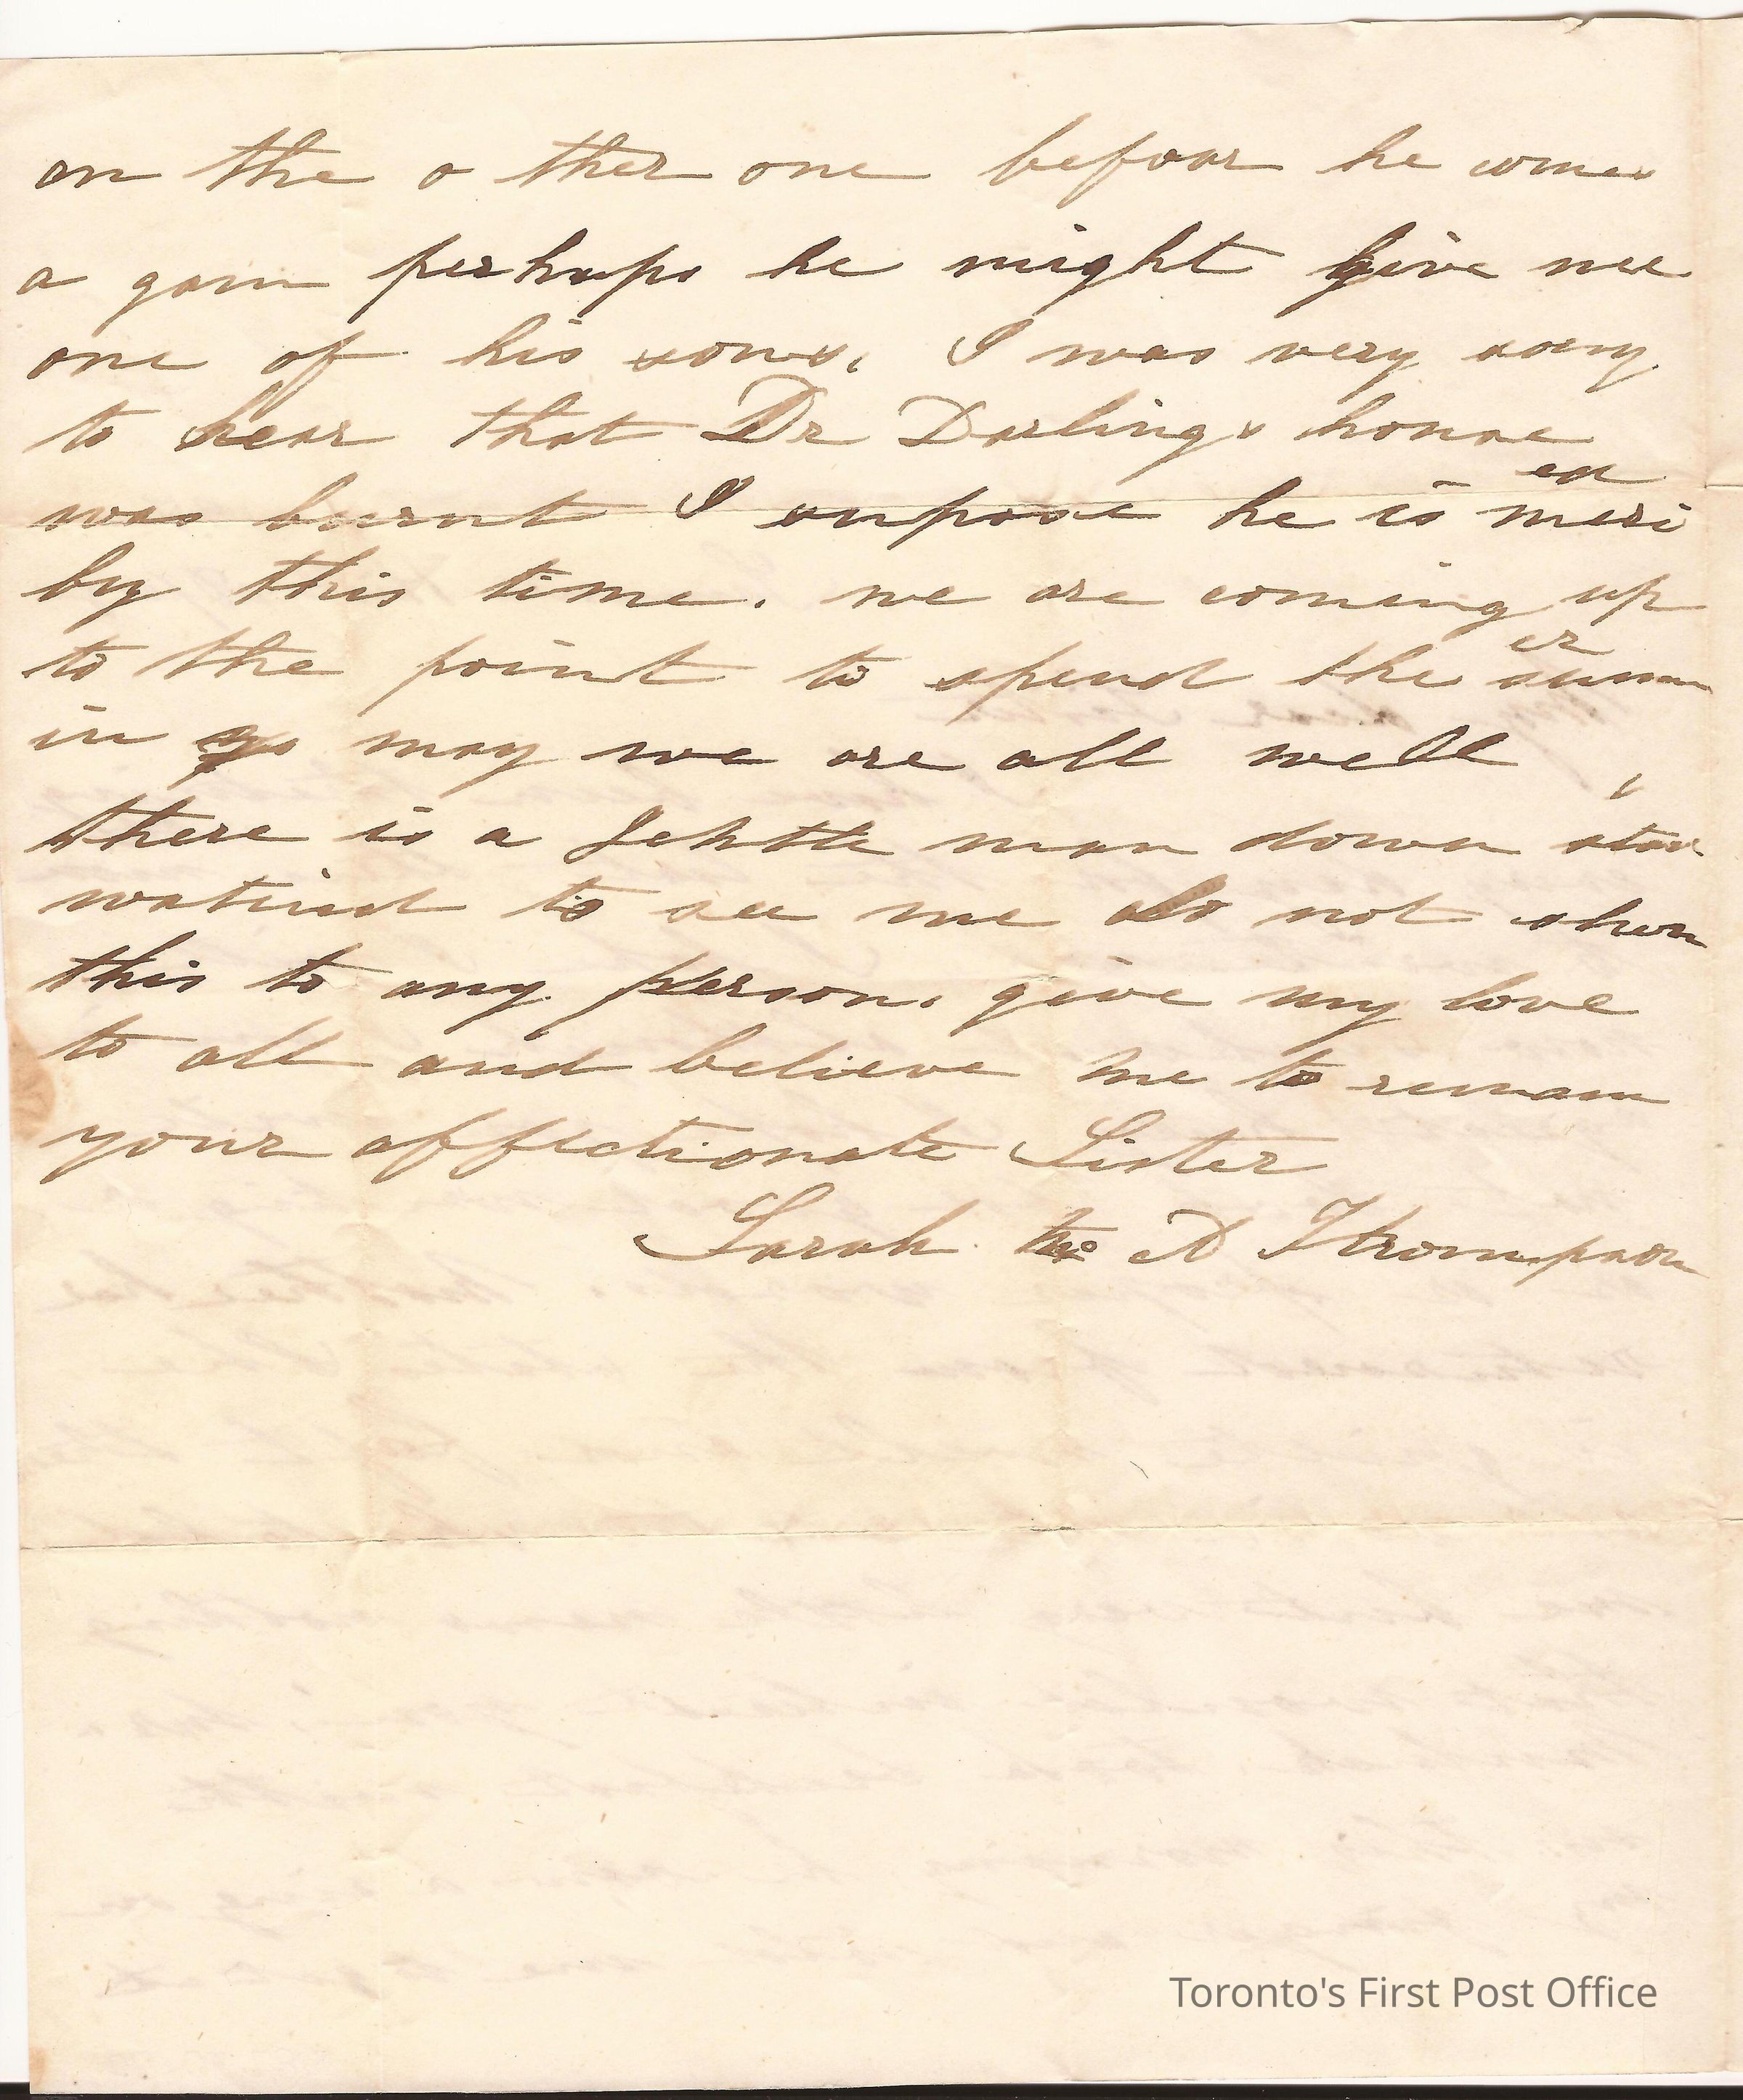 on the o ther one befoar he comes
a gain perhaps he might give mee
one of his sons. I was very sory
to hear that Dr Darlings house
was burnt I supose he is meri
ed
by this time. we are coming up
to the point to spend the summ
er
in may we are all well
there is a Jentle man down stair
to see me do not shew
this to any person. give my love
to all and believe me to remain
your affectionate Sister
Sarah A Thompson
Toronto's First Post Office